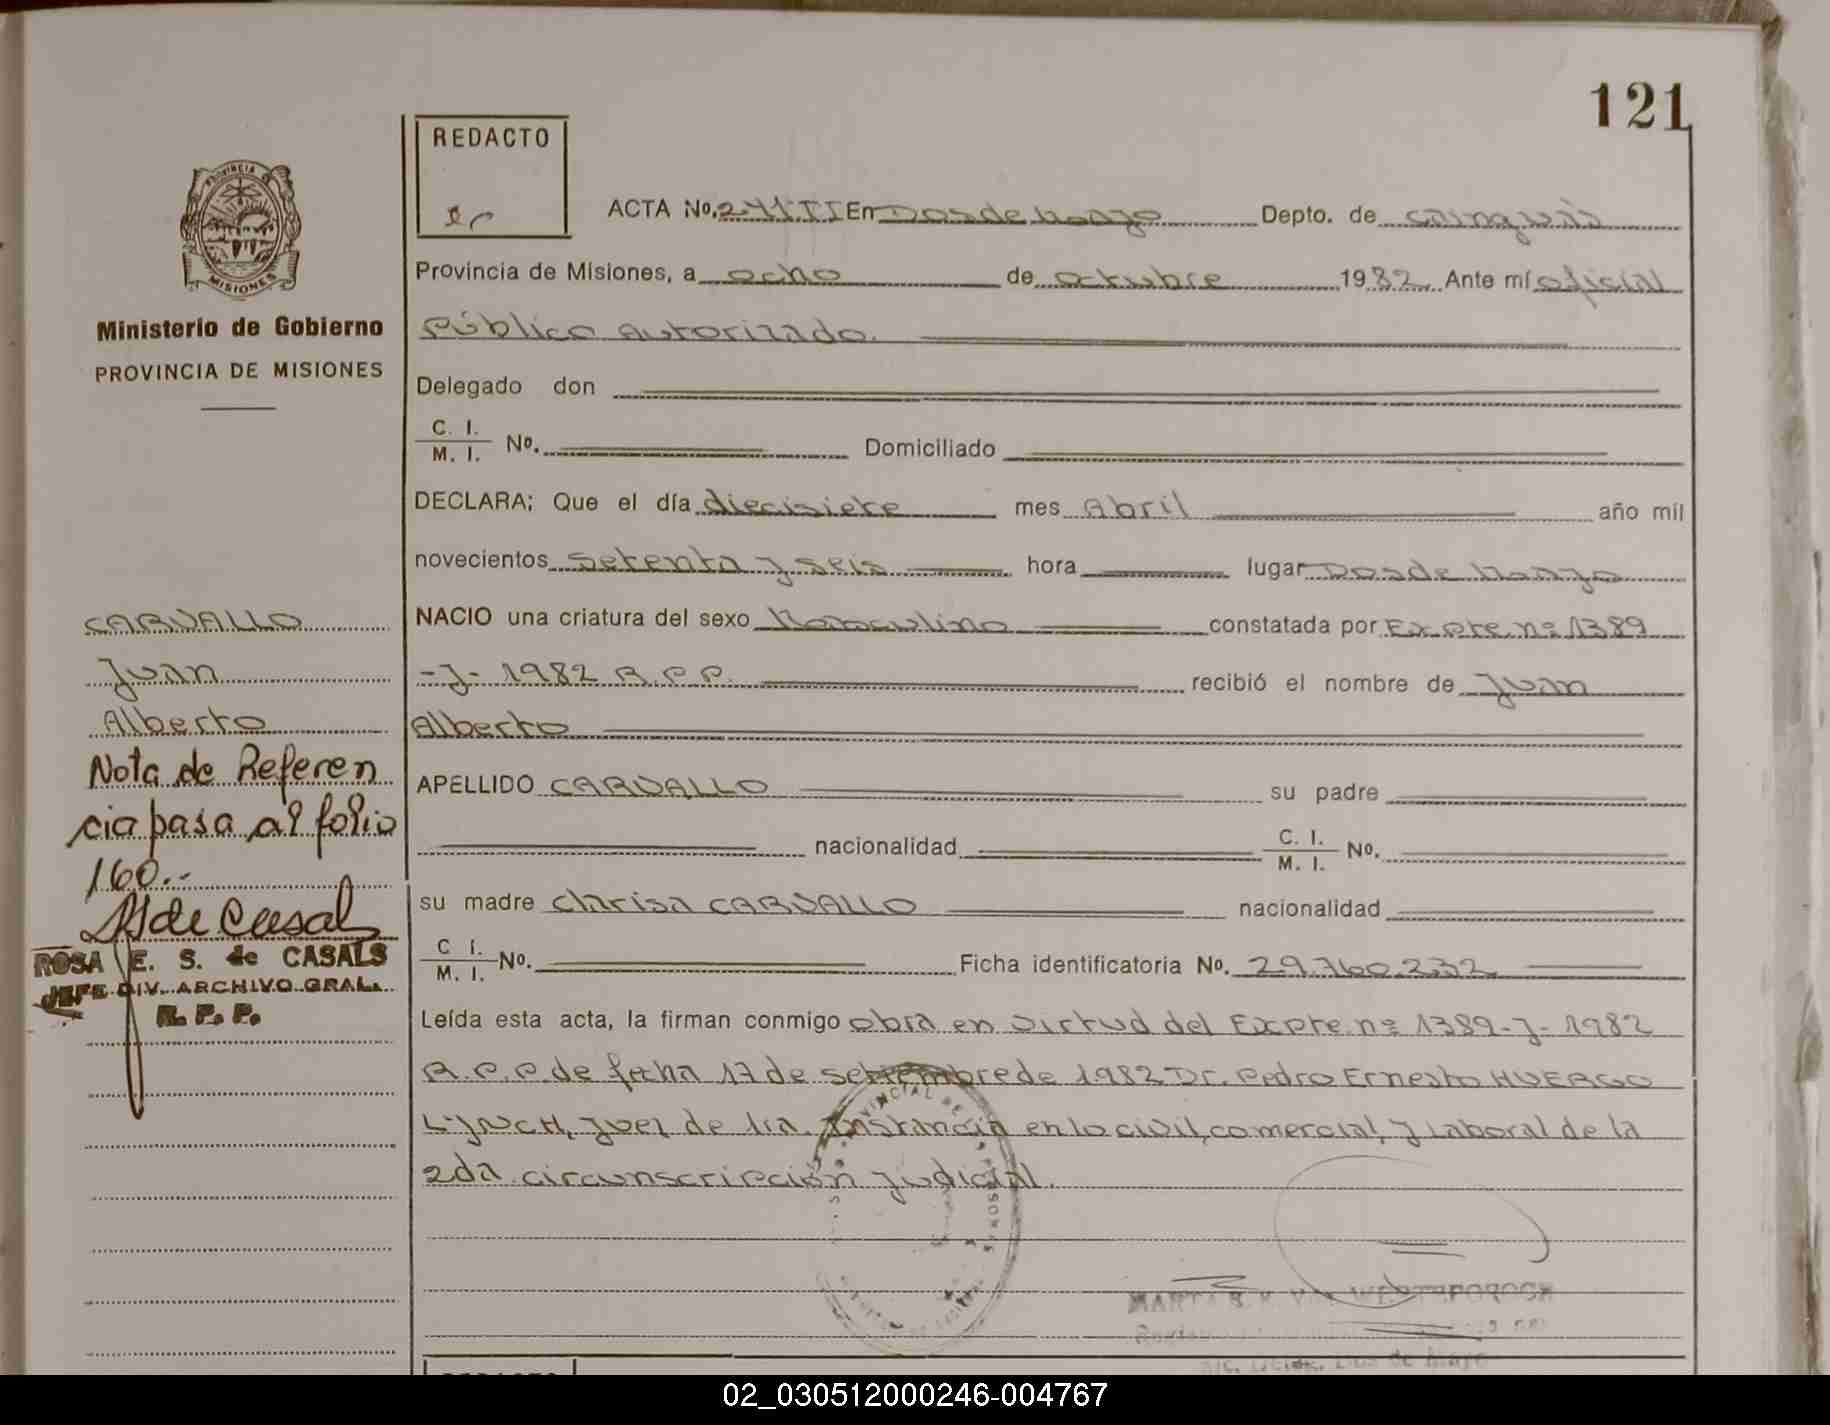 121
REDACTO
ACTA No. 241 II En Dos de Mayo Depto. de Cainguás
Provincia de Misiones, a ocho de octubre 1982 Ante mí oficial
Público Autorizado.
Delegado don
C. I.
M. I. No. Domiciliado
DECLARA; Que el día diecisiete mes Abril año mil
novecientos setenta y seis hora lugar Dos de Mayo
NACIO una criatura del sexo Masculino constatada por Expte. nº 1389
-J- 1982 R.P.P. recibió el nombre de Juan
Alberto
APELLIDO CARVALLO su padre
nacionalidad C. I.
M. I. No.
su madre Clarisa CARVALLO nacionalidad
C I.
M. I. No. Ficha identificatoria No. 29.760.232
Leída esta acta, la firman conmigo obra en virtud del Expte. nº 1389-J-1982
R.P.P. de fecha 17 de settembre de 1982 Dr. Pedro Ernesto HUERGO
LYNCH, Juez de 1ra. Instancia en lo civil, comercial, y Laboral de la
2da circunscripción Judicial.
PROVINCIA DE
MISIONES
Ministerio de Gobierno
PROVINCIA DE MISIONES
CARVALLO
Juan
Alberto
Nota de Referen
cia pasa al folio
160..
ROSA E. S. de CASALS
JEFE DIV. ARCHIVO GRAL.
R. P. P.
Dos de Mayo
02_030512000246-004767